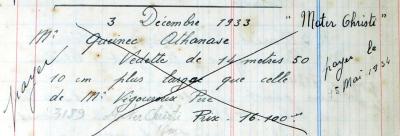 3 Décembre 1933 "Mater Christi"
Mr Queinec Athanase
Vedette de 14 mètres 50
10 cm plus large que celle
de Mr Vigouroux Père
Prix - 16.100
payer
payer le
15 Mai 1934
3189 Mater Christi